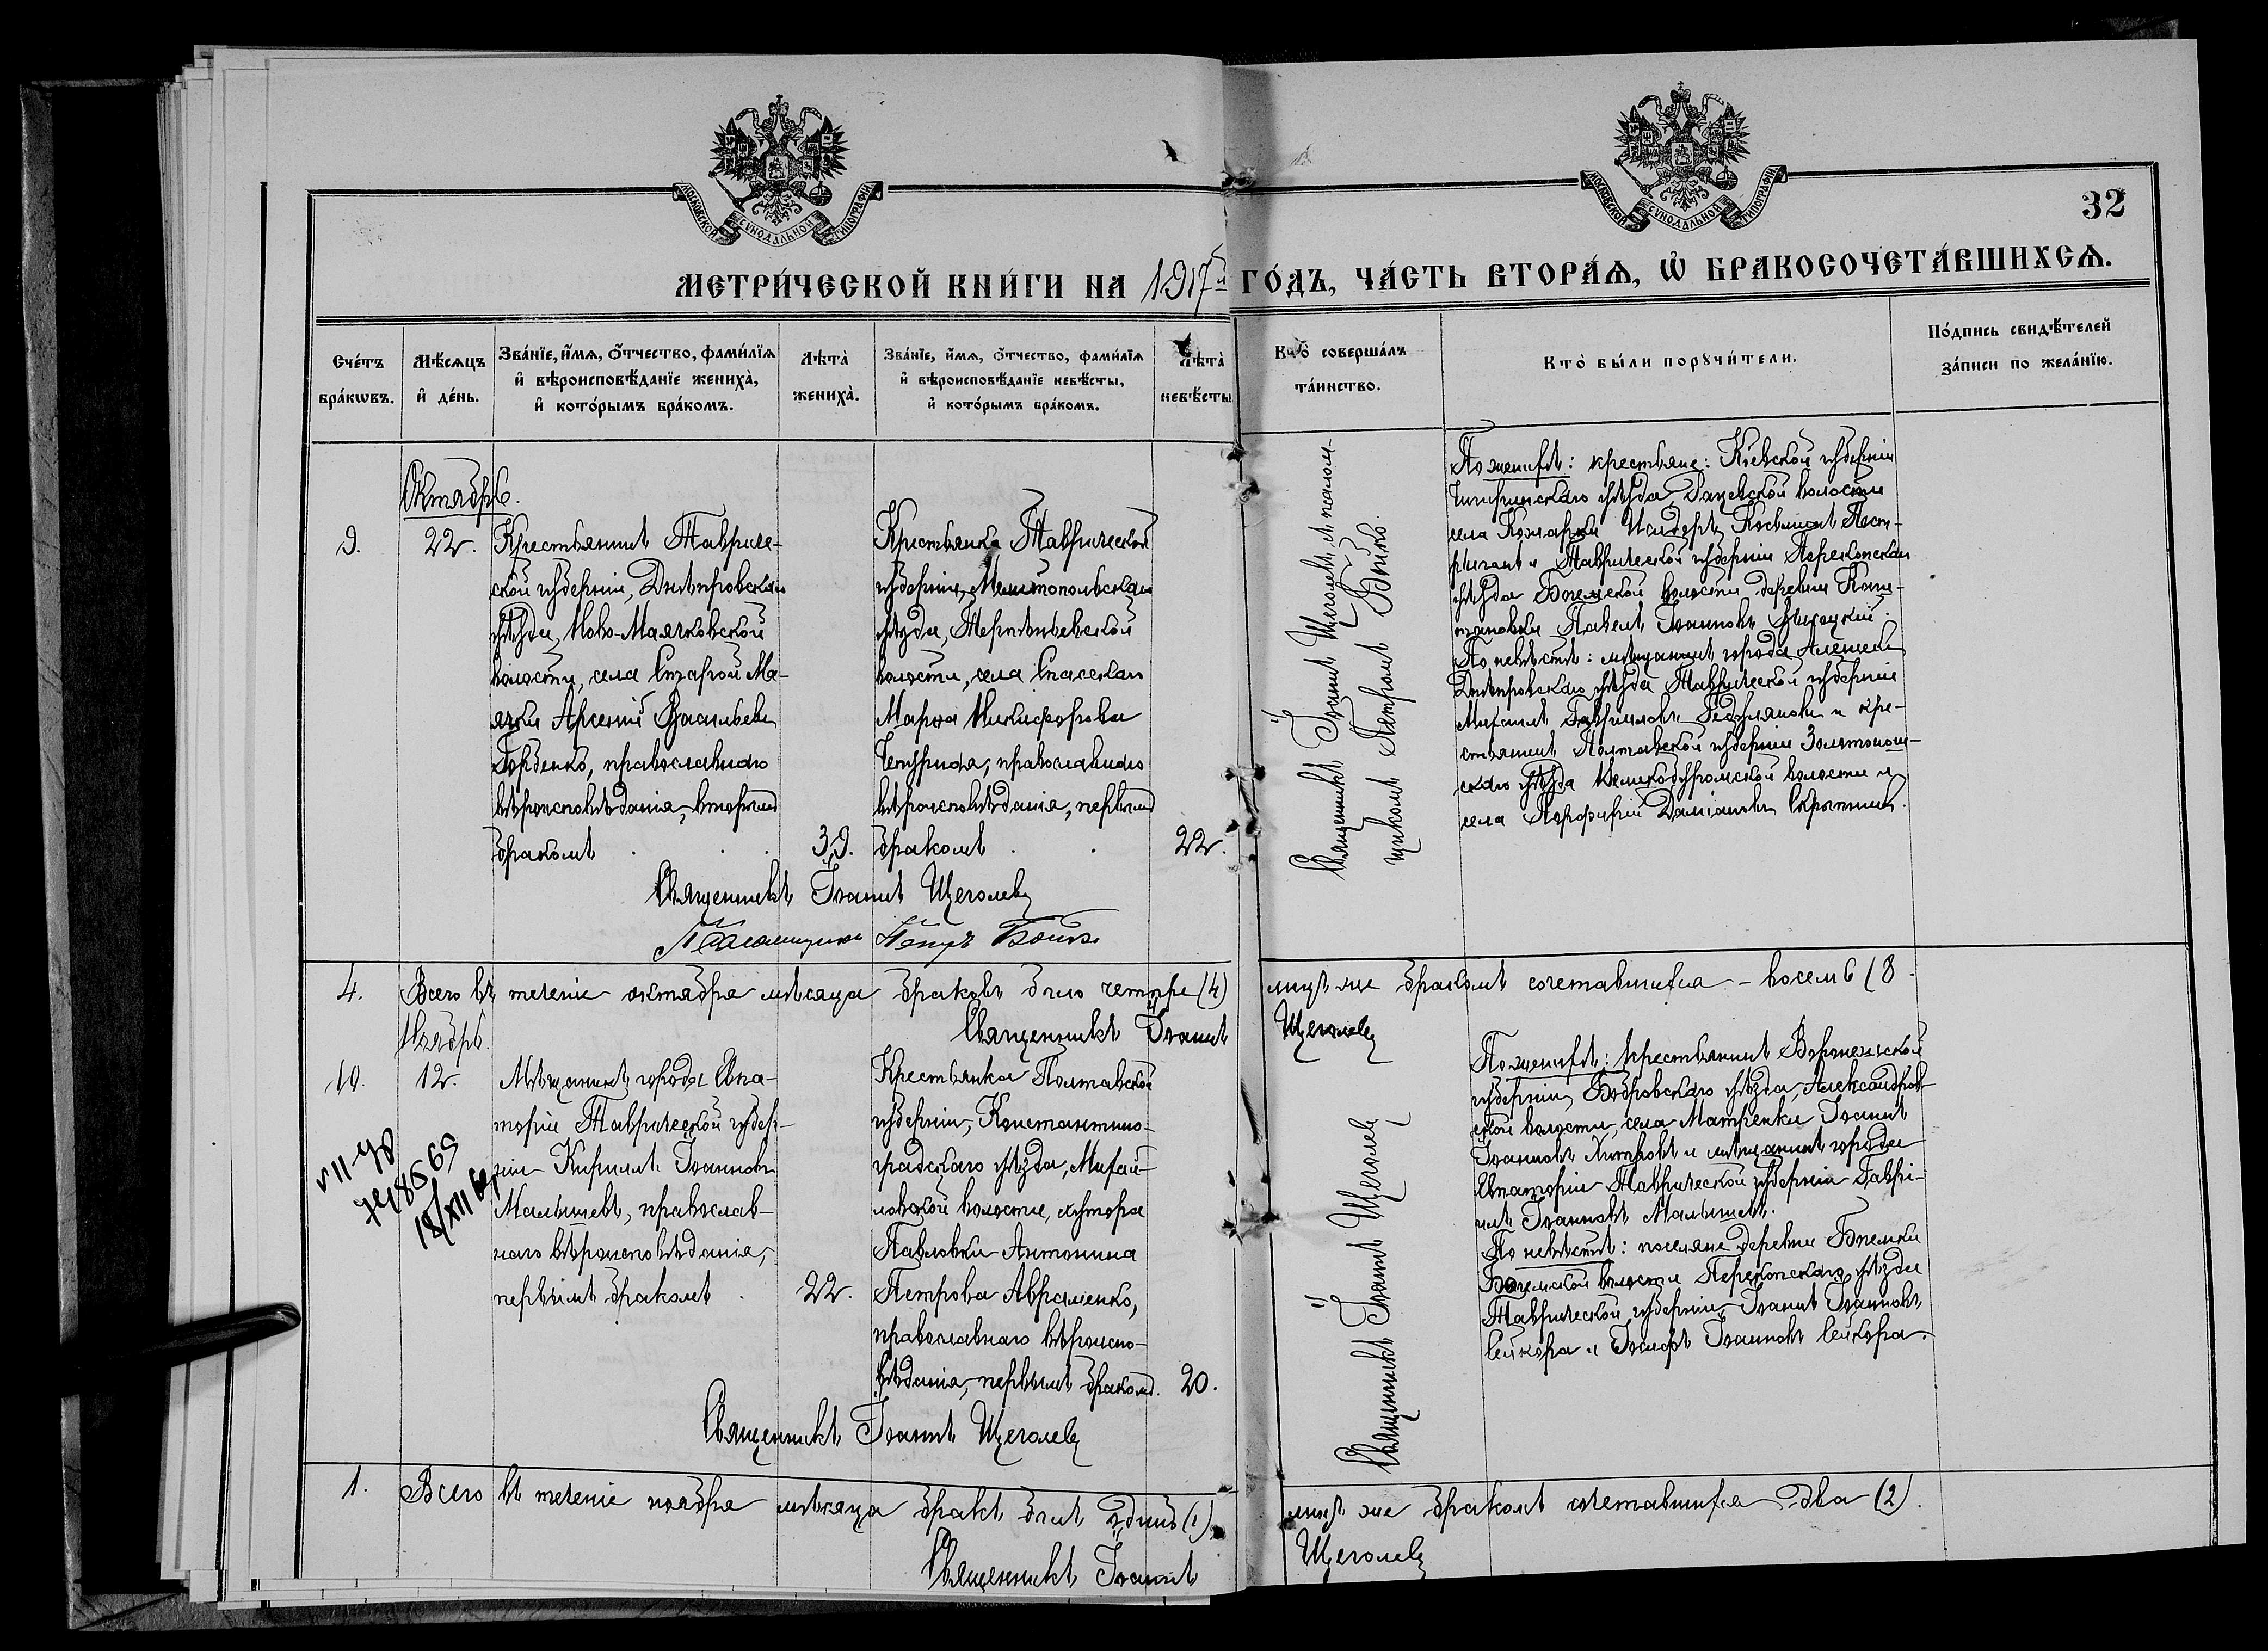 МОСКОВСКОЙ СѴНОДАЛЬНОЙ ТИПОГРАФІИ
МОСКОВСКОЙ СѴНОДАЛЬНОЙ ТИПОГРАФІИ
32
МЕТРИ́ЧЕСКОЙ КНИ́ГИ НА 1917й ГО́ДЪ, ЧА́СТЬ ВТОРА́Ѧ, Ѡ҆ БРАКОСОЧЕТА́ВШИХСѦ.
Сче́тъ бра́кѡвъ.
Мѣ́сѧцъ и҆ де́нь.
Зва́нїе, и҆́мѧ, ѻ҆́тчество, фами́лїѧ и҆ вѣроисповѣ́данїе жениха̀, и҆ кото́рымъ бра́комъ.
Лѣта̀ жениха̀.
Зва́нїе, и҆́мѧ, ѻ҆́тчество, фами́лїѧ и҆ вѣроисповѣ́данїе невѣ́сты, и҆ кото́рымъ бра́комъ.
Лѣта̀ невѣ́сты.
Кто̀ соверша́лъ та́инство.
Кто̀ бы́ли порꙋчи́тели.
По́дпись свидѣ́телей за́писи по жела́нїю.
Октябрь.
9.
22.
Крестьянинъ Тавриче-
ской губерніи, Днѣпровскаго
уѣзда, Ново-Маячковской
волости, села Старой Ма-
ячки Арсеній Васильевъ
Горденко, православнаго
вѣроисповѣданія, вторымъ
бракомъ
39.
Крестьянка Таврической
губерніи, Мелитопольскаго
уѣзда, Терпѣньевской
волости, села Спасскаго
Марфа Никифорова
Чепурная, православнаго
вѣроисповѣданія, первымъ
бракомъ
22.
Священникъ Іоаннъ Щеголевъ с псалом-
щикомъ Петромъ Бойко.
По женихѣ: крестьяне: Кіевской губерніи
Чигиринскаго уѣзда, Рацевской волости
села Кожарки Исидоръ
и Таврической губерніи Перекопскаго
уѣзда Богемской волости деревни
Павелъ Іоанновъ
По невѣстѣ: мѣщанинъ города Алешекъ
Днѣпровскаго уѣзда Таврической губерніи
Михаилъ Гавриловъ и кре-
стьянинъ Полтавской губерніи Золотонош-
скаго уѣзда волости и
села Порфирій Даміановъ Скрыпникъ.
Священникъ Іоаннъ Щеголевъ
Псаломщикъ Петръ Бойко
4.
Всего въ теченіе октября мѣсяца браковъ было четыре (4) лицъ же бракомъ сочетавшихся - восемь (8
Священникъ Іоаннъ Щеголевъ
Ноябрь.
10.
12.
Мѣщанинъ города Евпа-
торіи Таврической губер-
ніи Кириллъ Іоанновъ
Малышевъ, православ-
наго вѣроисповѣданія,
первымъ бракомъ
22.
Крестьянка Полтавской
губерніи, Константино-
градскаго уѣзда, Михай-
ловской волости, хутора
Павловки Антонина
Петрова Авраменко,
православнаго вѣроиспо-
вѣданія, первымъ бракомъ.
20.
Священникъ Іоаннъ Щеголевъ
По женихѣ: крестьянинъ Воронежской
губерніи, Бобровскаго уѣзда, Александров-
ской волости, села Матренки Іоаннъ
Іоанновъ Хитровъ и мѣщанинъ города
Евпаторіи Таврической губерніи Гаврі-
илъ Іоанновъ Малышевъ.
По невѣстѣ: поселяне деревни Богемки
Богемской волости Перекопскаго уѣзда
Таврической губерніи Іоаннъ Іоанновъ
Сейкора и Іосифъ Іоанновъ Сейкора.
Священникъ Іоаннъ Щеголевъ
1.
Всего въ теченіе ноября мѣсяца бракъ былъ одинъ (1) лицъ же бракомъ сочетавшихся два (2).
Священникъ Іоаннъ Щеголевъ